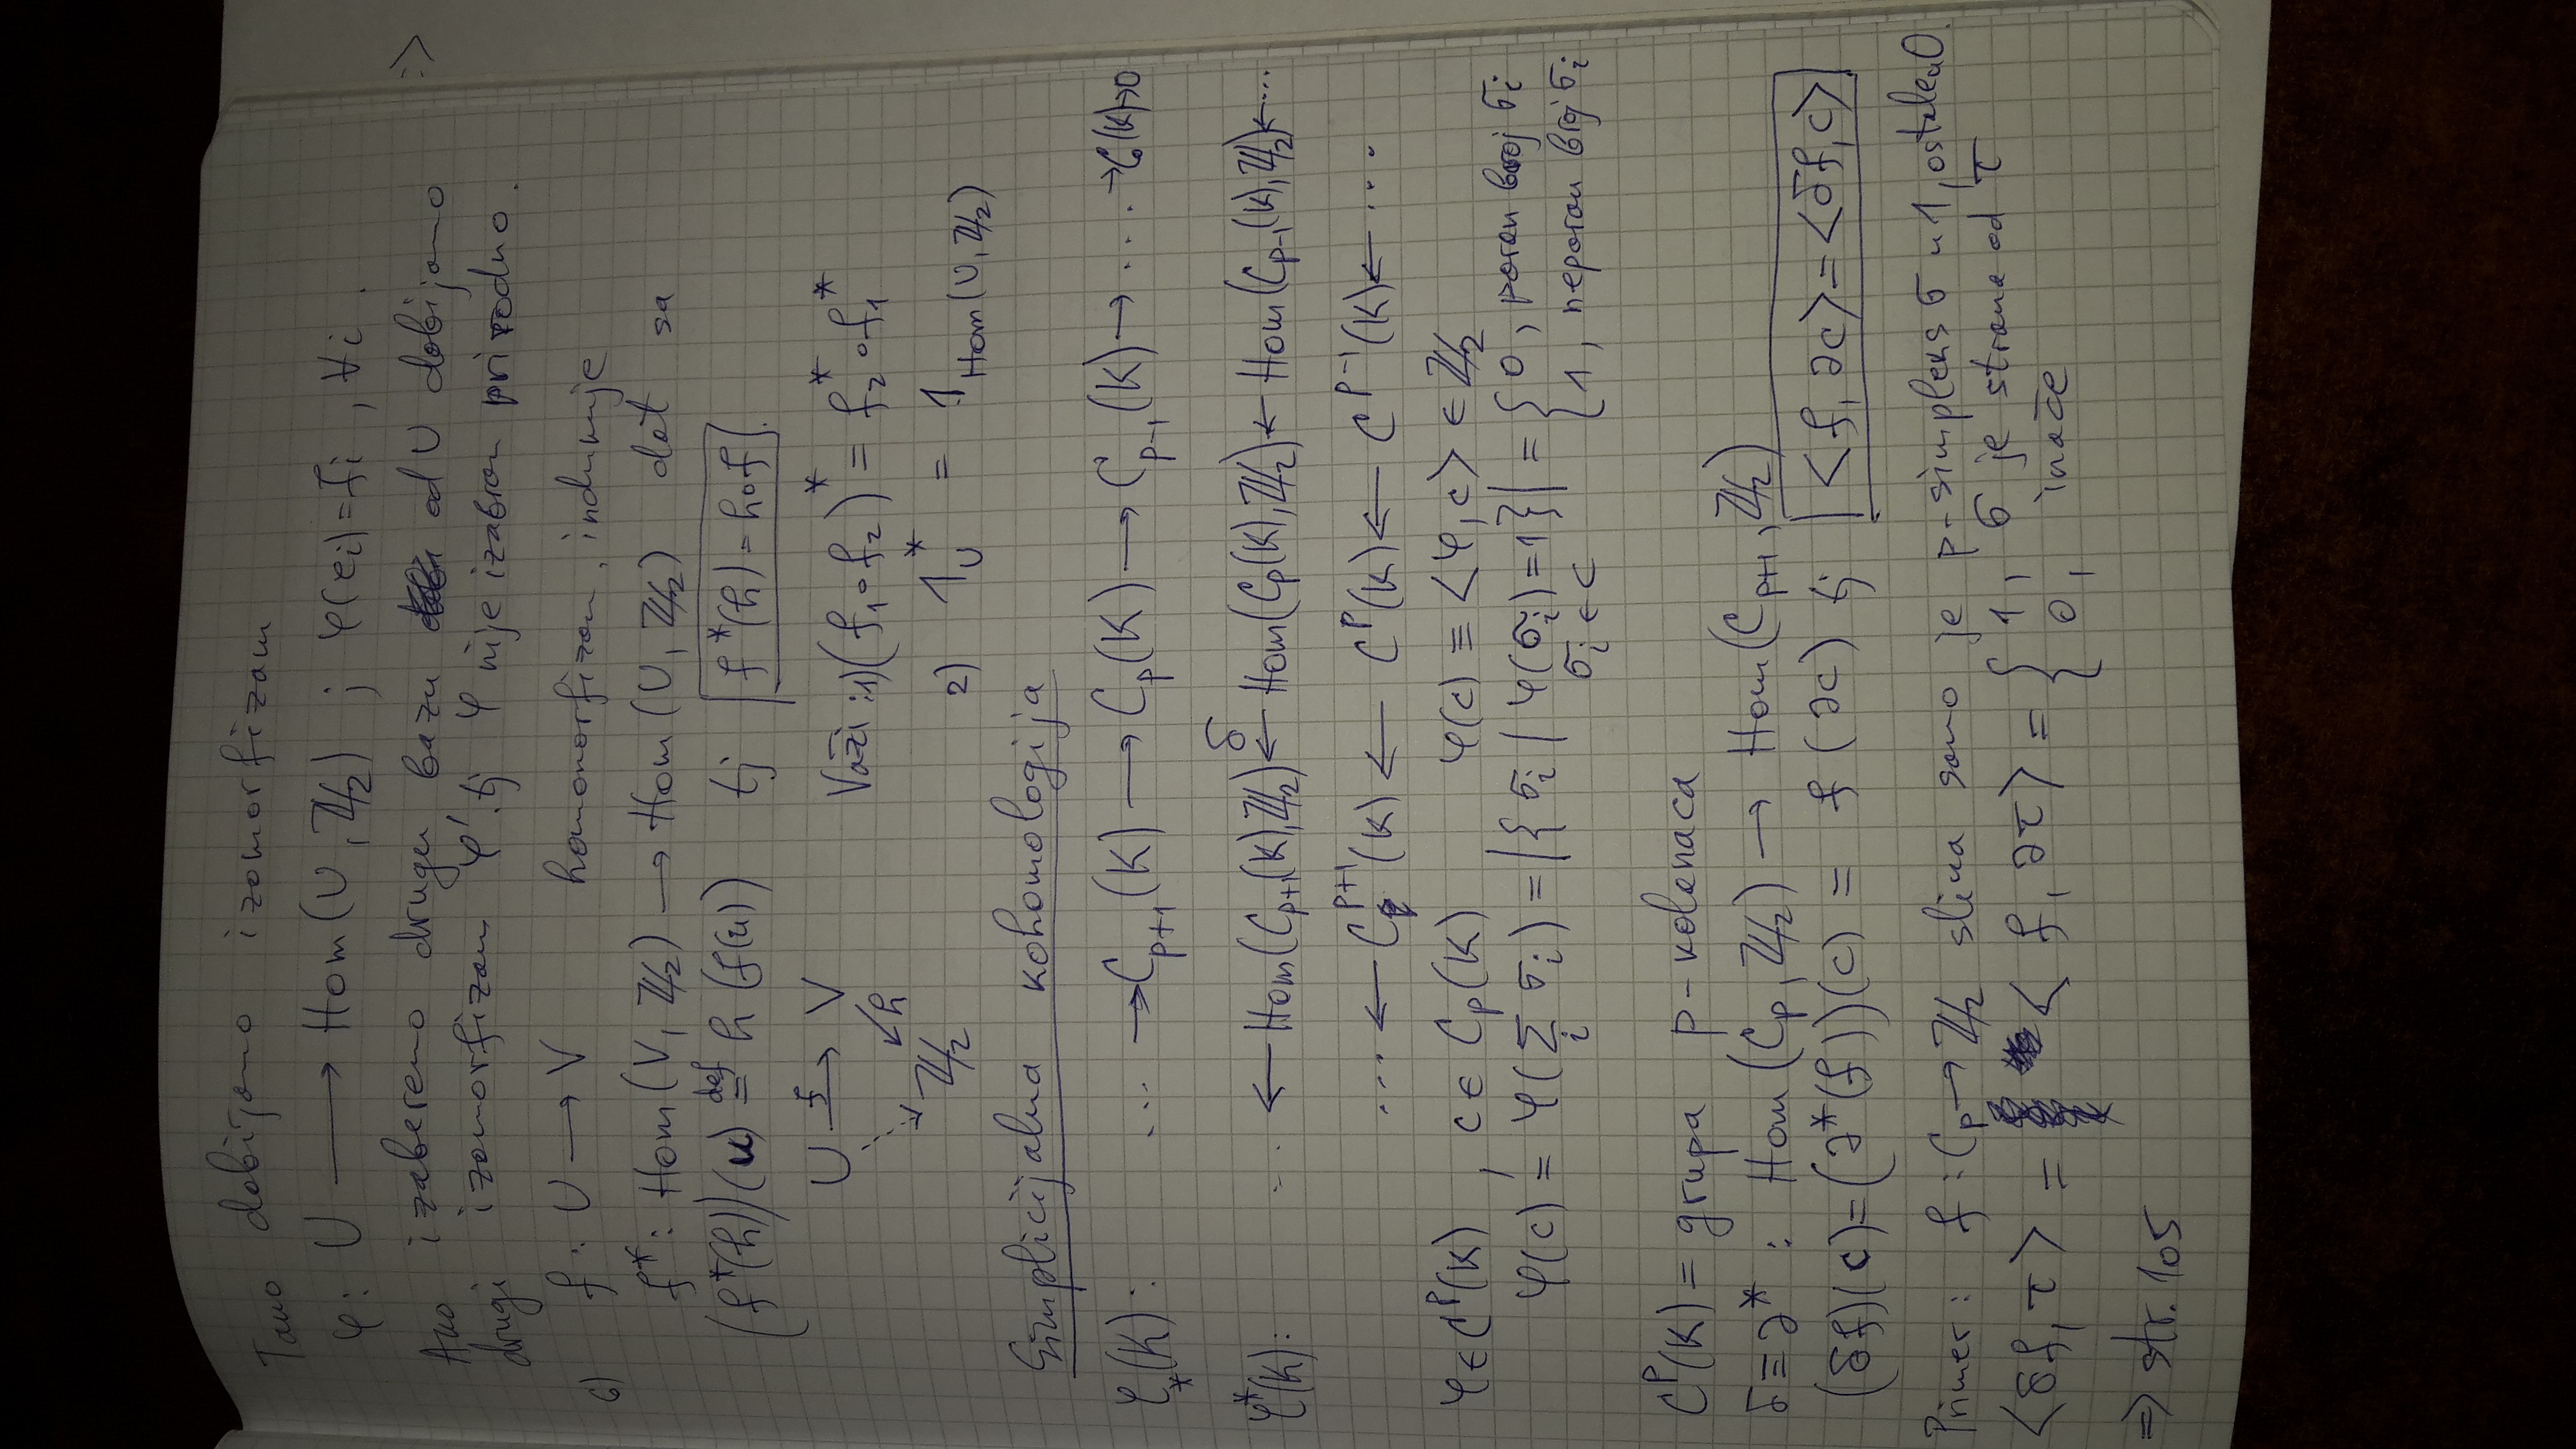 Tako dobijamo izomorfizam :)
φ: U ⟶ Hom(U, ℤ₂) ; φ(eᵢ)=fᵢ , ∀i .
Ako izaberemo drugu bazu od U dobijamo
drugi izomorfizam φ'. tj φ nije izabran prirodno.
6) f: U ⟶ V homomorfizam, indukuje
f*: Hom(V, ℤ₂) ⟶ Hom(U, ℤ₂) dat sa
(f*(h))(u) ≝ h(f(u)) tj f*(h)=h∘f.
U —f→ V Važi: 1) (f₁∘f₂)* = f₂*∘f₁*
h
ℤ₂ 2) 1_U* = 1_Hom(U, ℤ₂)
Simplicijalna kohomologija
φ_*(K): ... → C_{p+1}(K) ⟶ C_p(K) ⟶ C_{p-1}(K) → ... → C₀(K)→0
φ*(K): ... ← Hom(C_{p+1}(K),ℤ₂) ←δ Hom(C_p(K),ℤ₂) ← Hom(C_{p-1}(K),ℤ₂) ← ...
... ← C^{p+1}(K) ← C^p(K) ← C^{p-1}(K) ← ...
φ∈C^p(K) , c∈C_p(K) φ(c) ≡ <φ,c> ∈ ℤ₂
φ(c) = φ(∑ᵢ σᵢ) = |{σᵢ | φ(σᵢ)=1}| = { 0, paran broj σᵢ
σᵢ∈c 1, neparan broj σᵢ
C^p(K) = grupa p-kolanaca
δ≡∂* : Hom(C_p, ℤ₂) → Hom(C_{p+1}, ℤ₂)
(δf)(c)=(∂*(f))(c) = f(∂c) tj <f,∂c>=<δf,c>
Primer: f: C_p→ℤ₂ slika samo je p-simpleks σ u 1, ostale u 0.
<δf,τ> = <f,∂τ> = { 1, σ je strana od τ
0, inače
⇒ str. 105